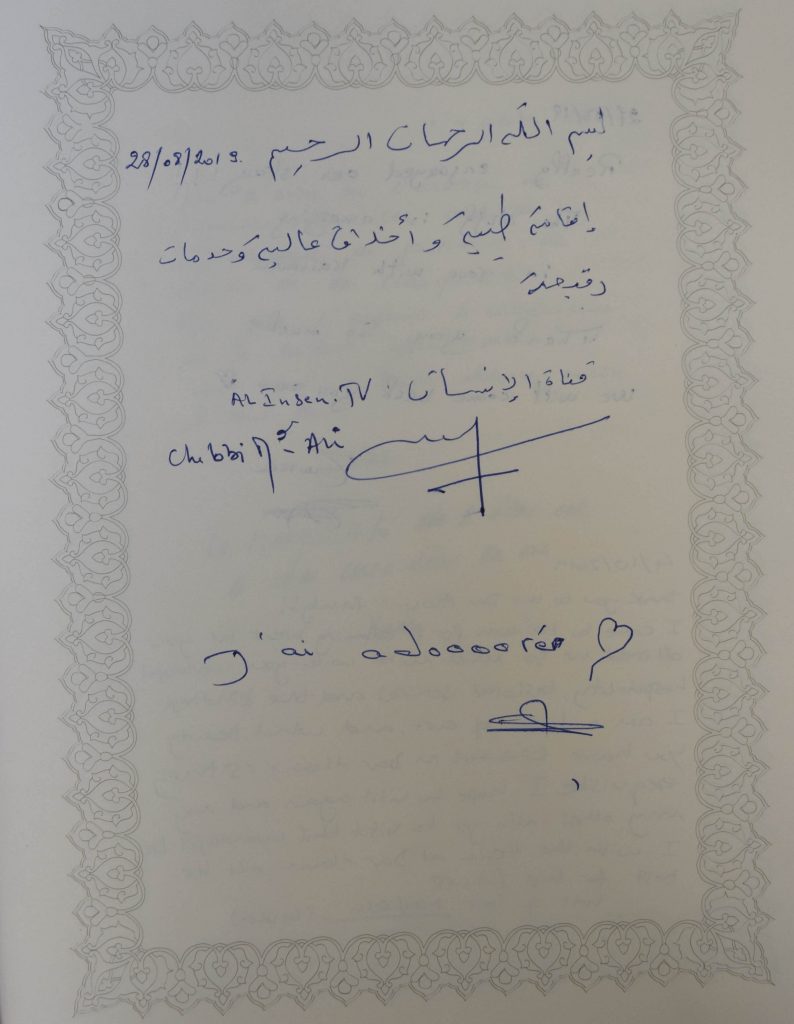 بسم الله الرحمان الرحيم 28/08/2019.
إقامة طيبة و أخلاق عالية و خدمات
قناة الإنسان. AL Insen. TV
Chebbi Ali
J'ai adoooorée